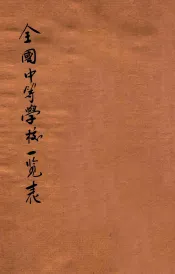 全國中等學校一覽表